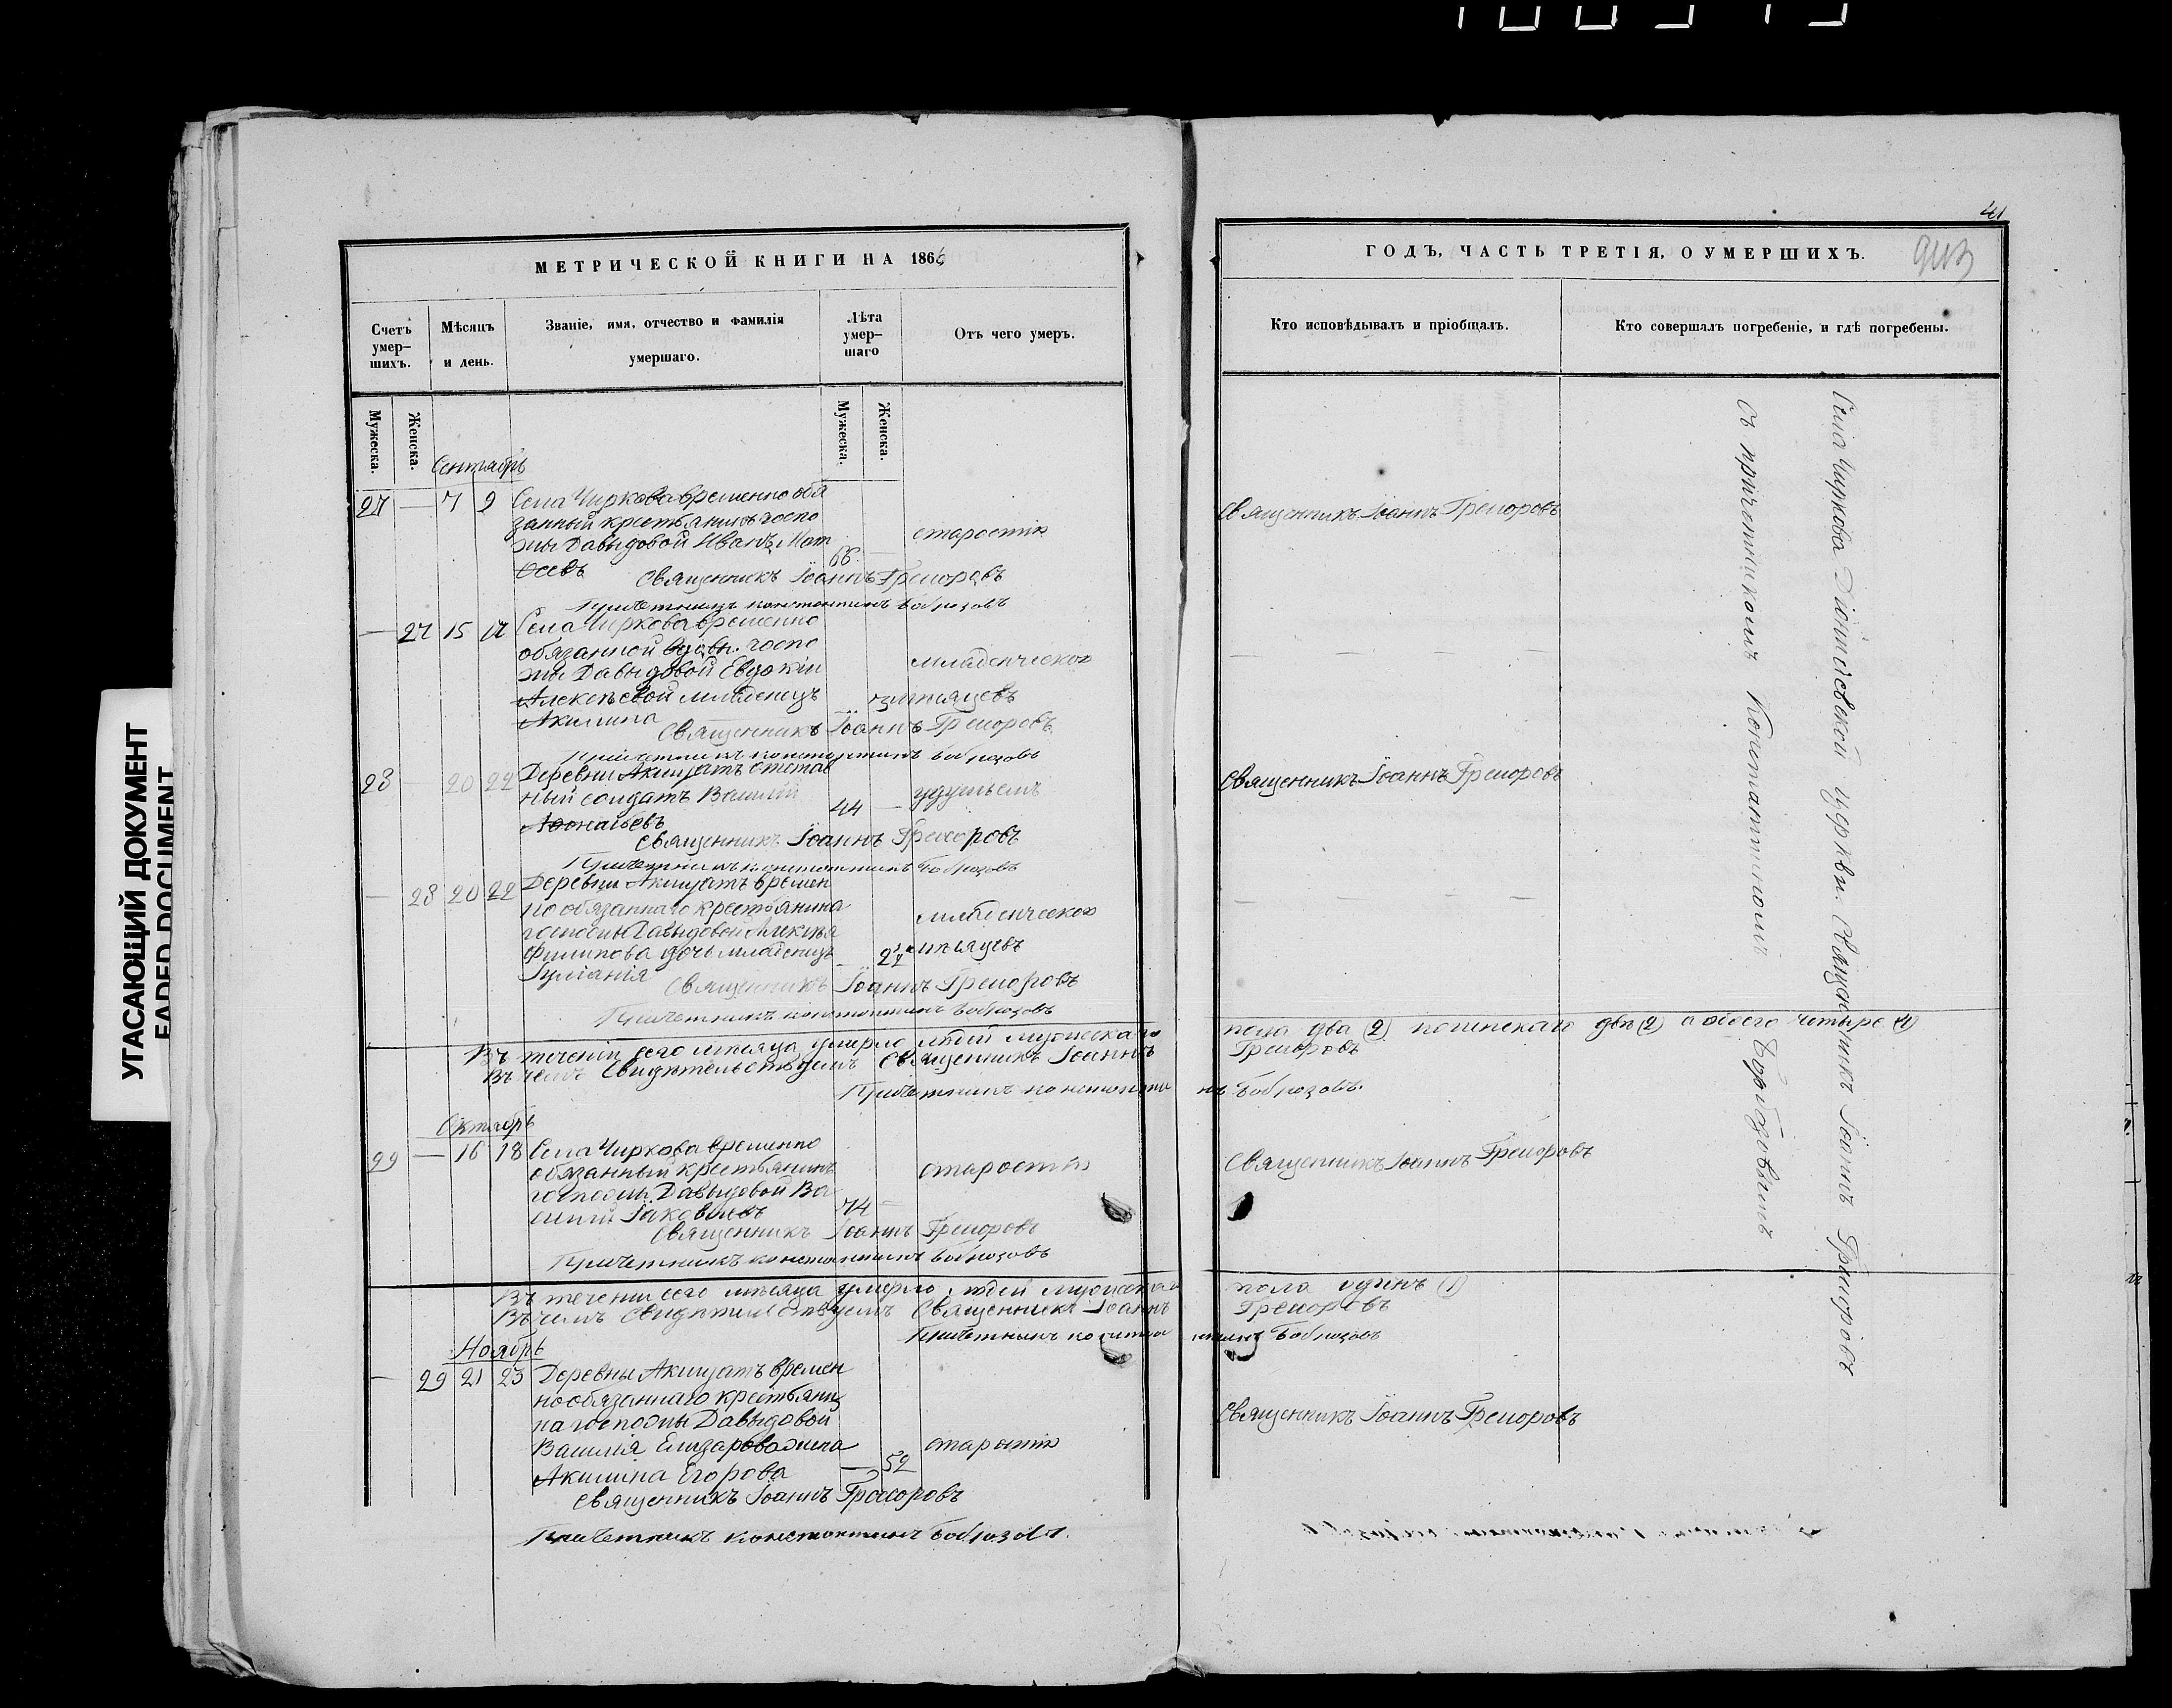 УГАСАЮЩИЙ ДОКУМЕНТ
FADED DOCUMENT
МЕТРИЧЕСКОЙ КНИГИ НА 1866
Счетъ умер–шихъ.
Мѣсяцъ и день.
Званіе, имя, отчество и фамилія умершаго.
Лѣта умер–шаго
Отъ чего умеръ.
Мужеска.
Женска.
Мужеска.
Женска.
Сентябрь
27 — 7 9 Села Чиркова временно обя
занный крестьянинъ госпо
жи Давыдовой Иванъ Мат
ѳеевъ 66 — старости
Священникъ Іоаннъ Григоровъ
Причетникъ Константинъ
— 27 15 17 Села Чиркова временно
обязанной вдовы госпо
жи Давыдовой Евдокіи
Алексѣевой младенецъ
Акилина мѣсяцевъ младенческой
Священникъ Іоаннъ Григоровъ
Причетникъ Константинъ
28 — 20 22 Деревни Акишатъ отстав
ный солдатъ Василій
Аѳонасьевъ 44 — удушьемъ
Священникъ Іоаннъ Григоровъ
Причетникъ Константинъ
— 28 20 22 Деревни Акишатъ времен
но обязаннаго крестьянина
госпожи Давыдовой Алексѣя
Филипова дочь младенецъ
Іуліанія — 2½ мѣсяцевъ младенческой
Священникъ Іоаннъ Григоровъ
Причетникъ Константинъ
Въ теченіи сего мѣсяца умерло людей мужескаго
Въ чемъ свидѣтельствуемъ Священникъ Іоаннъ
Причетникъ Константи
Октябрь
29 — 16 18 Села Чиркова временно
обязанный крестьянинъ
госпожи Давыдовой Ва
силій Іаковлевъ 74 — старости
Священникъ Іоаннъ Григоровъ
Причетникъ Константинъ
Въ теченіи сего мѣсяца умерло людей мужескаго
Въ чемъ свидѣтельствуемъ Священникъ Іоаннъ
Причетникъ Конста
Ноябрь
— 29 21 23 Деревни Акишатъ времен
но обязаннаго крестьяни
на госпожи Давыдовой
Василія Елизарова жена
Акилина Егорова — 52 старости
Священникъ Іоаннъ Григоровъ
Причетникъ Константинъ
41
ГОДЪ, ЧАСТЬ ТРЕТІЯ, О УМЕРШИХЪ.
Кто исповѣдывалъ и пріобщалъ.
Кто совершалъ погребеніе, и гдѣ погребены.
Священникъ Іоаннъ Григоровъ
Священникъ Іоаннъ Григоровъ
пола два (2) женскаго двѣ (2) а обоего четыре (4)
Григоровъ
нъ
Священникъ Іоаннъ Григоровъ
пола одинъ (1)
Григоровъ
нтинъ
Священникъ Іоаннъ Григоровъ
Села Чиркова церкви Священникъ Іоаннъ Григоровъ
съ причетникомъ Константиномъ